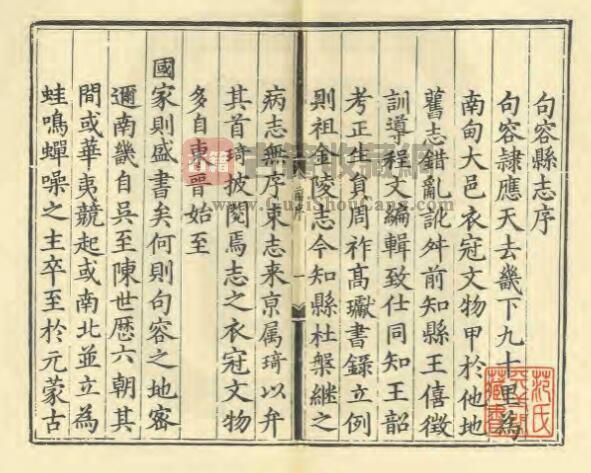 句容縣志序
句容隸應天去畿下九十里為
南甸大邑衣冠文物甲於他地
舊志錯亂訛舛前知縣王僖徵
訓導程文編輯致仕同知王韶
考正生負周祚高瓛書錄立例
則祖金陵志今知縣杜槃繼之
病志無序束志来京属琦以弁
其首琦披閱焉志之衣冠文物
多自東晉始至
國家則盛書矣何則句容之地密
邇南畿自吳至陳世歷六朝其
間或華夷競起或南北並立為
蛙鳴蟬噪之主卒至於元蒙古
序
一
古籍收藏網
www.GuJiShouCang.com
范氏
藏書